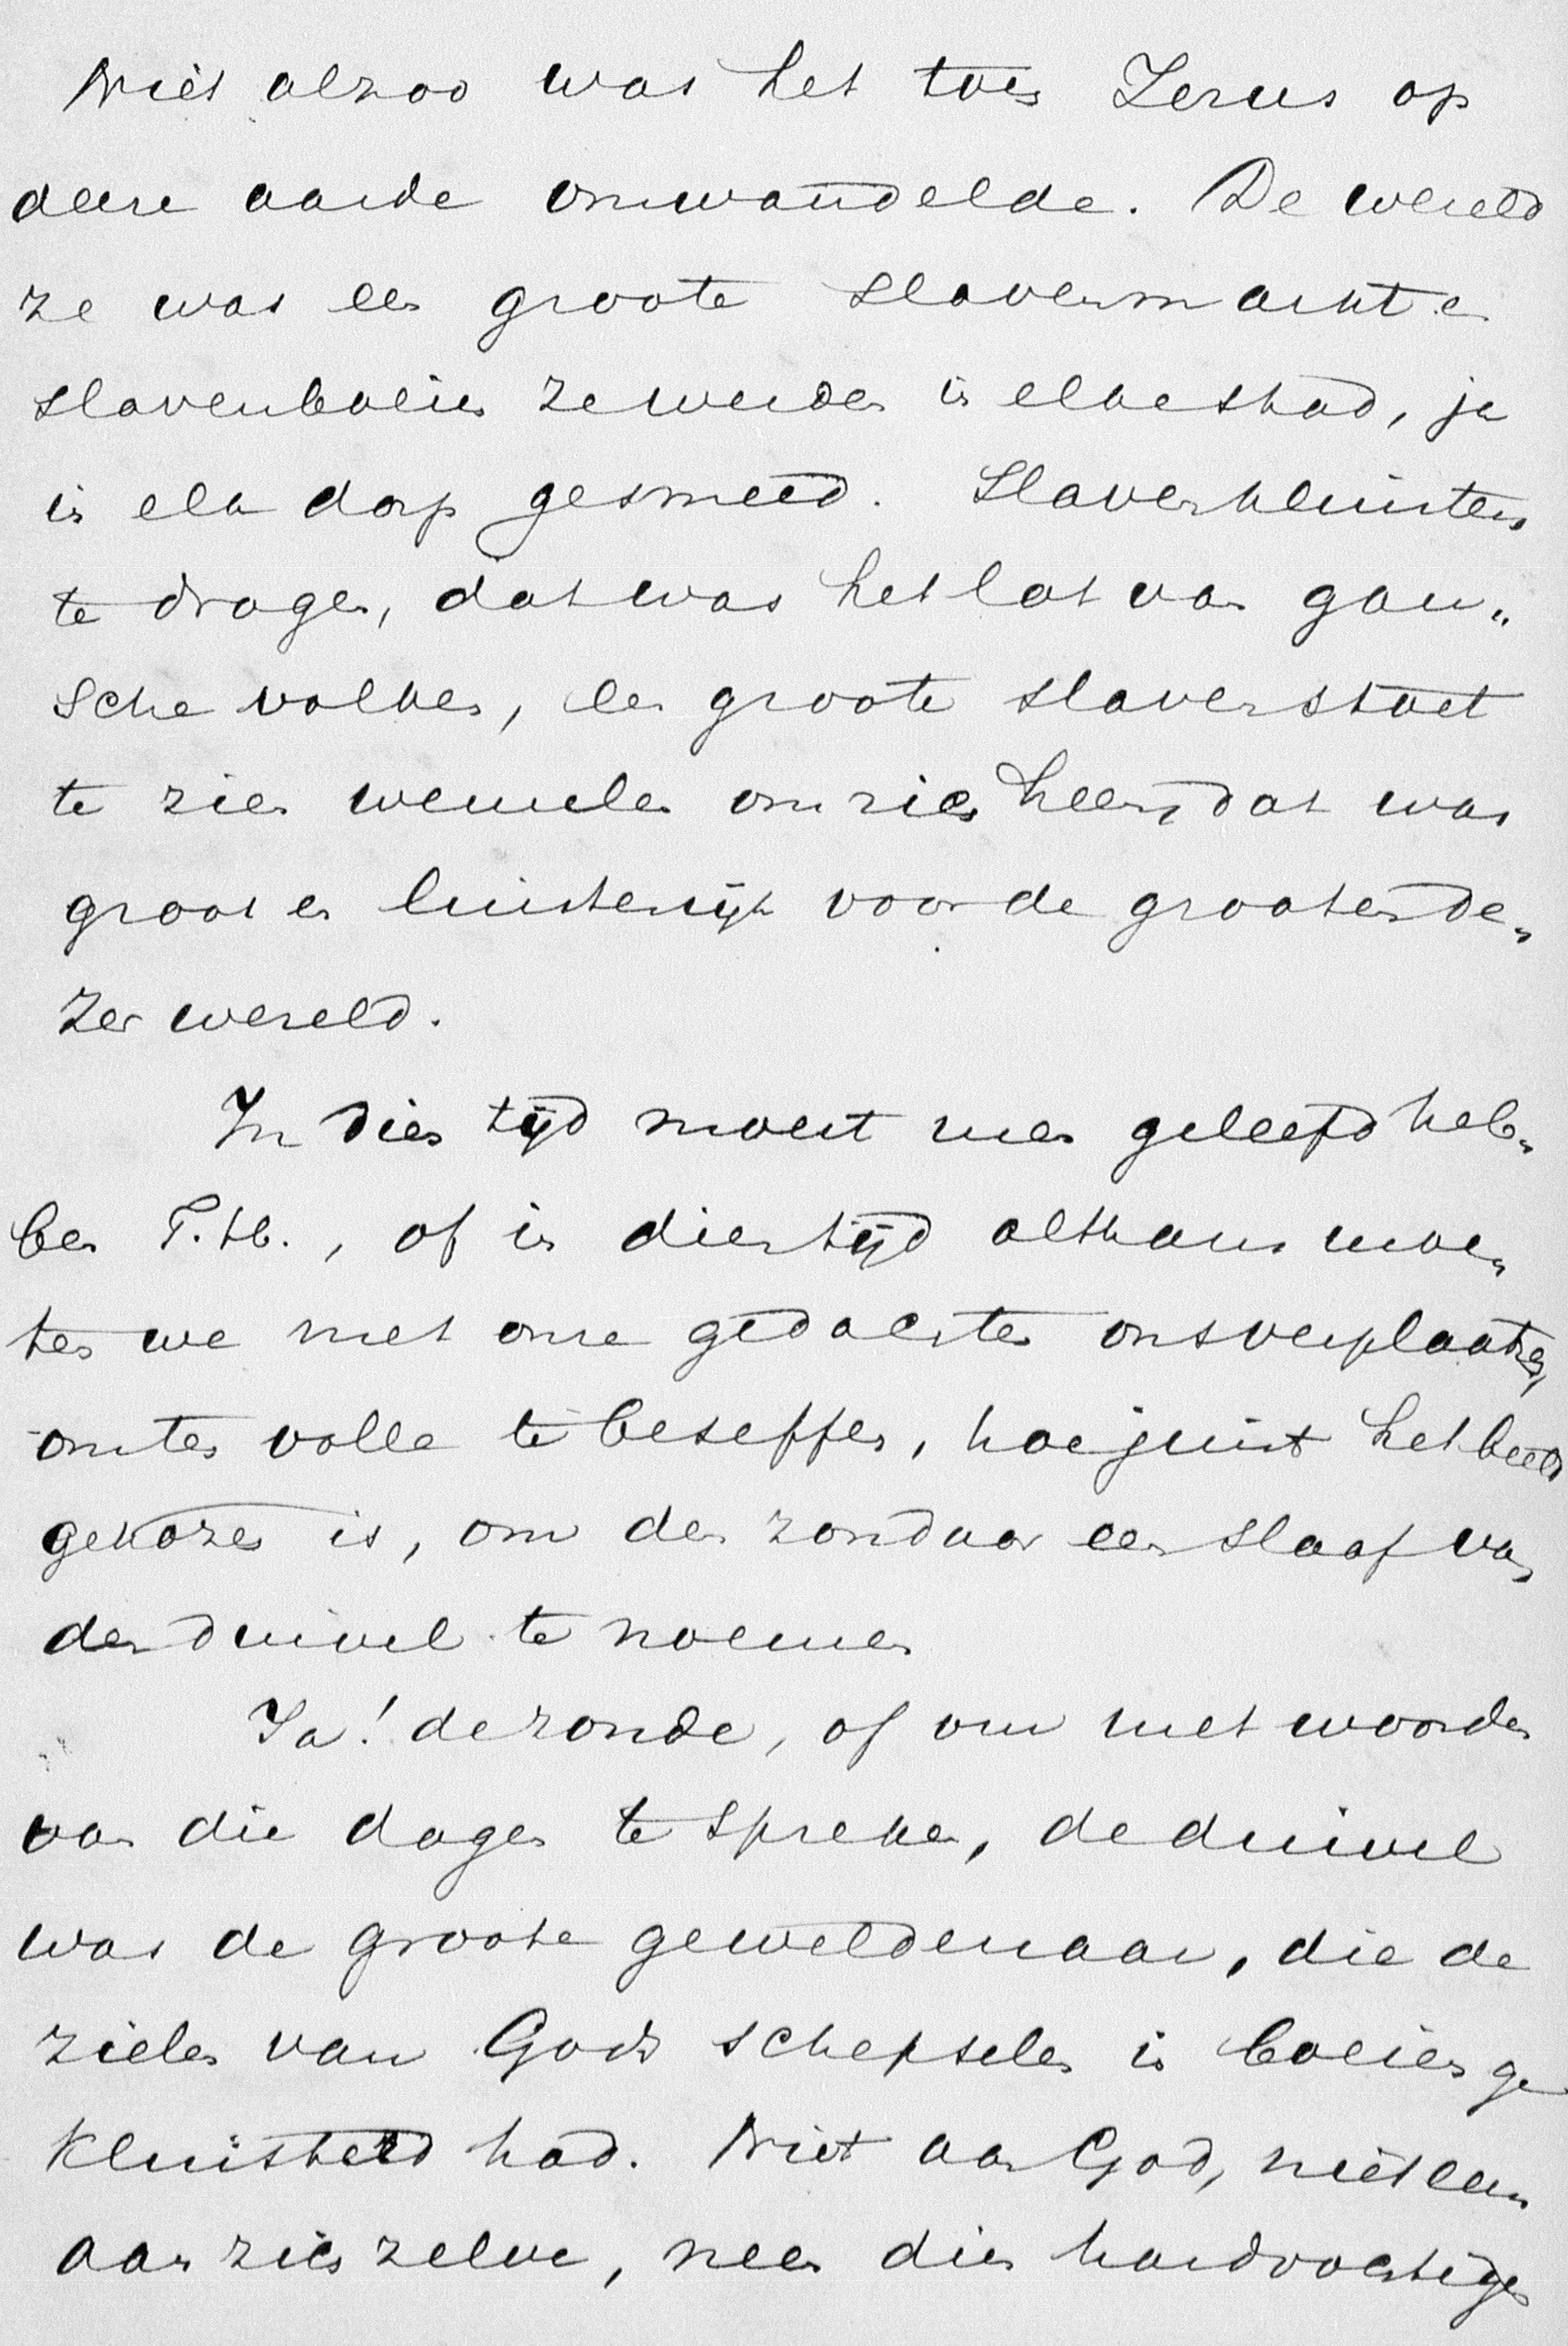 Niet alzoo was het toen Jezus op
deze aarde omwandelde. De wereld
ze was een groote slavenmarkt en
slavenboeien ze werden in elke stad, ja
in elk dorp gesmeed. Slavenkluisters
te dragen, dat was het lot van gan„
sche volken, een groote slavenstoet
te zien wemelen om zich heen, dat was
groot en luisterrijk voor de grooten de„
zer wereld.
In dien tijd moest men geleefd heb„
ben T.H., of in dien tijd althans moe„
ten we met onze gedachten ons verplaatsen,
om ten volle te beseffen, hoe juist het beeld
gekozen is, om den zondaar een slaaf van
den duivel te noemen
Ja! de zonde, of om met woorden
van die dagen te spreken, de duivel
was de groote geweldenaar, die de
zielen van Gods schepselen in boeien ge
kluisterd had. Niet aan God, niet een
aan zich zelve, neen dien hardvochtigen